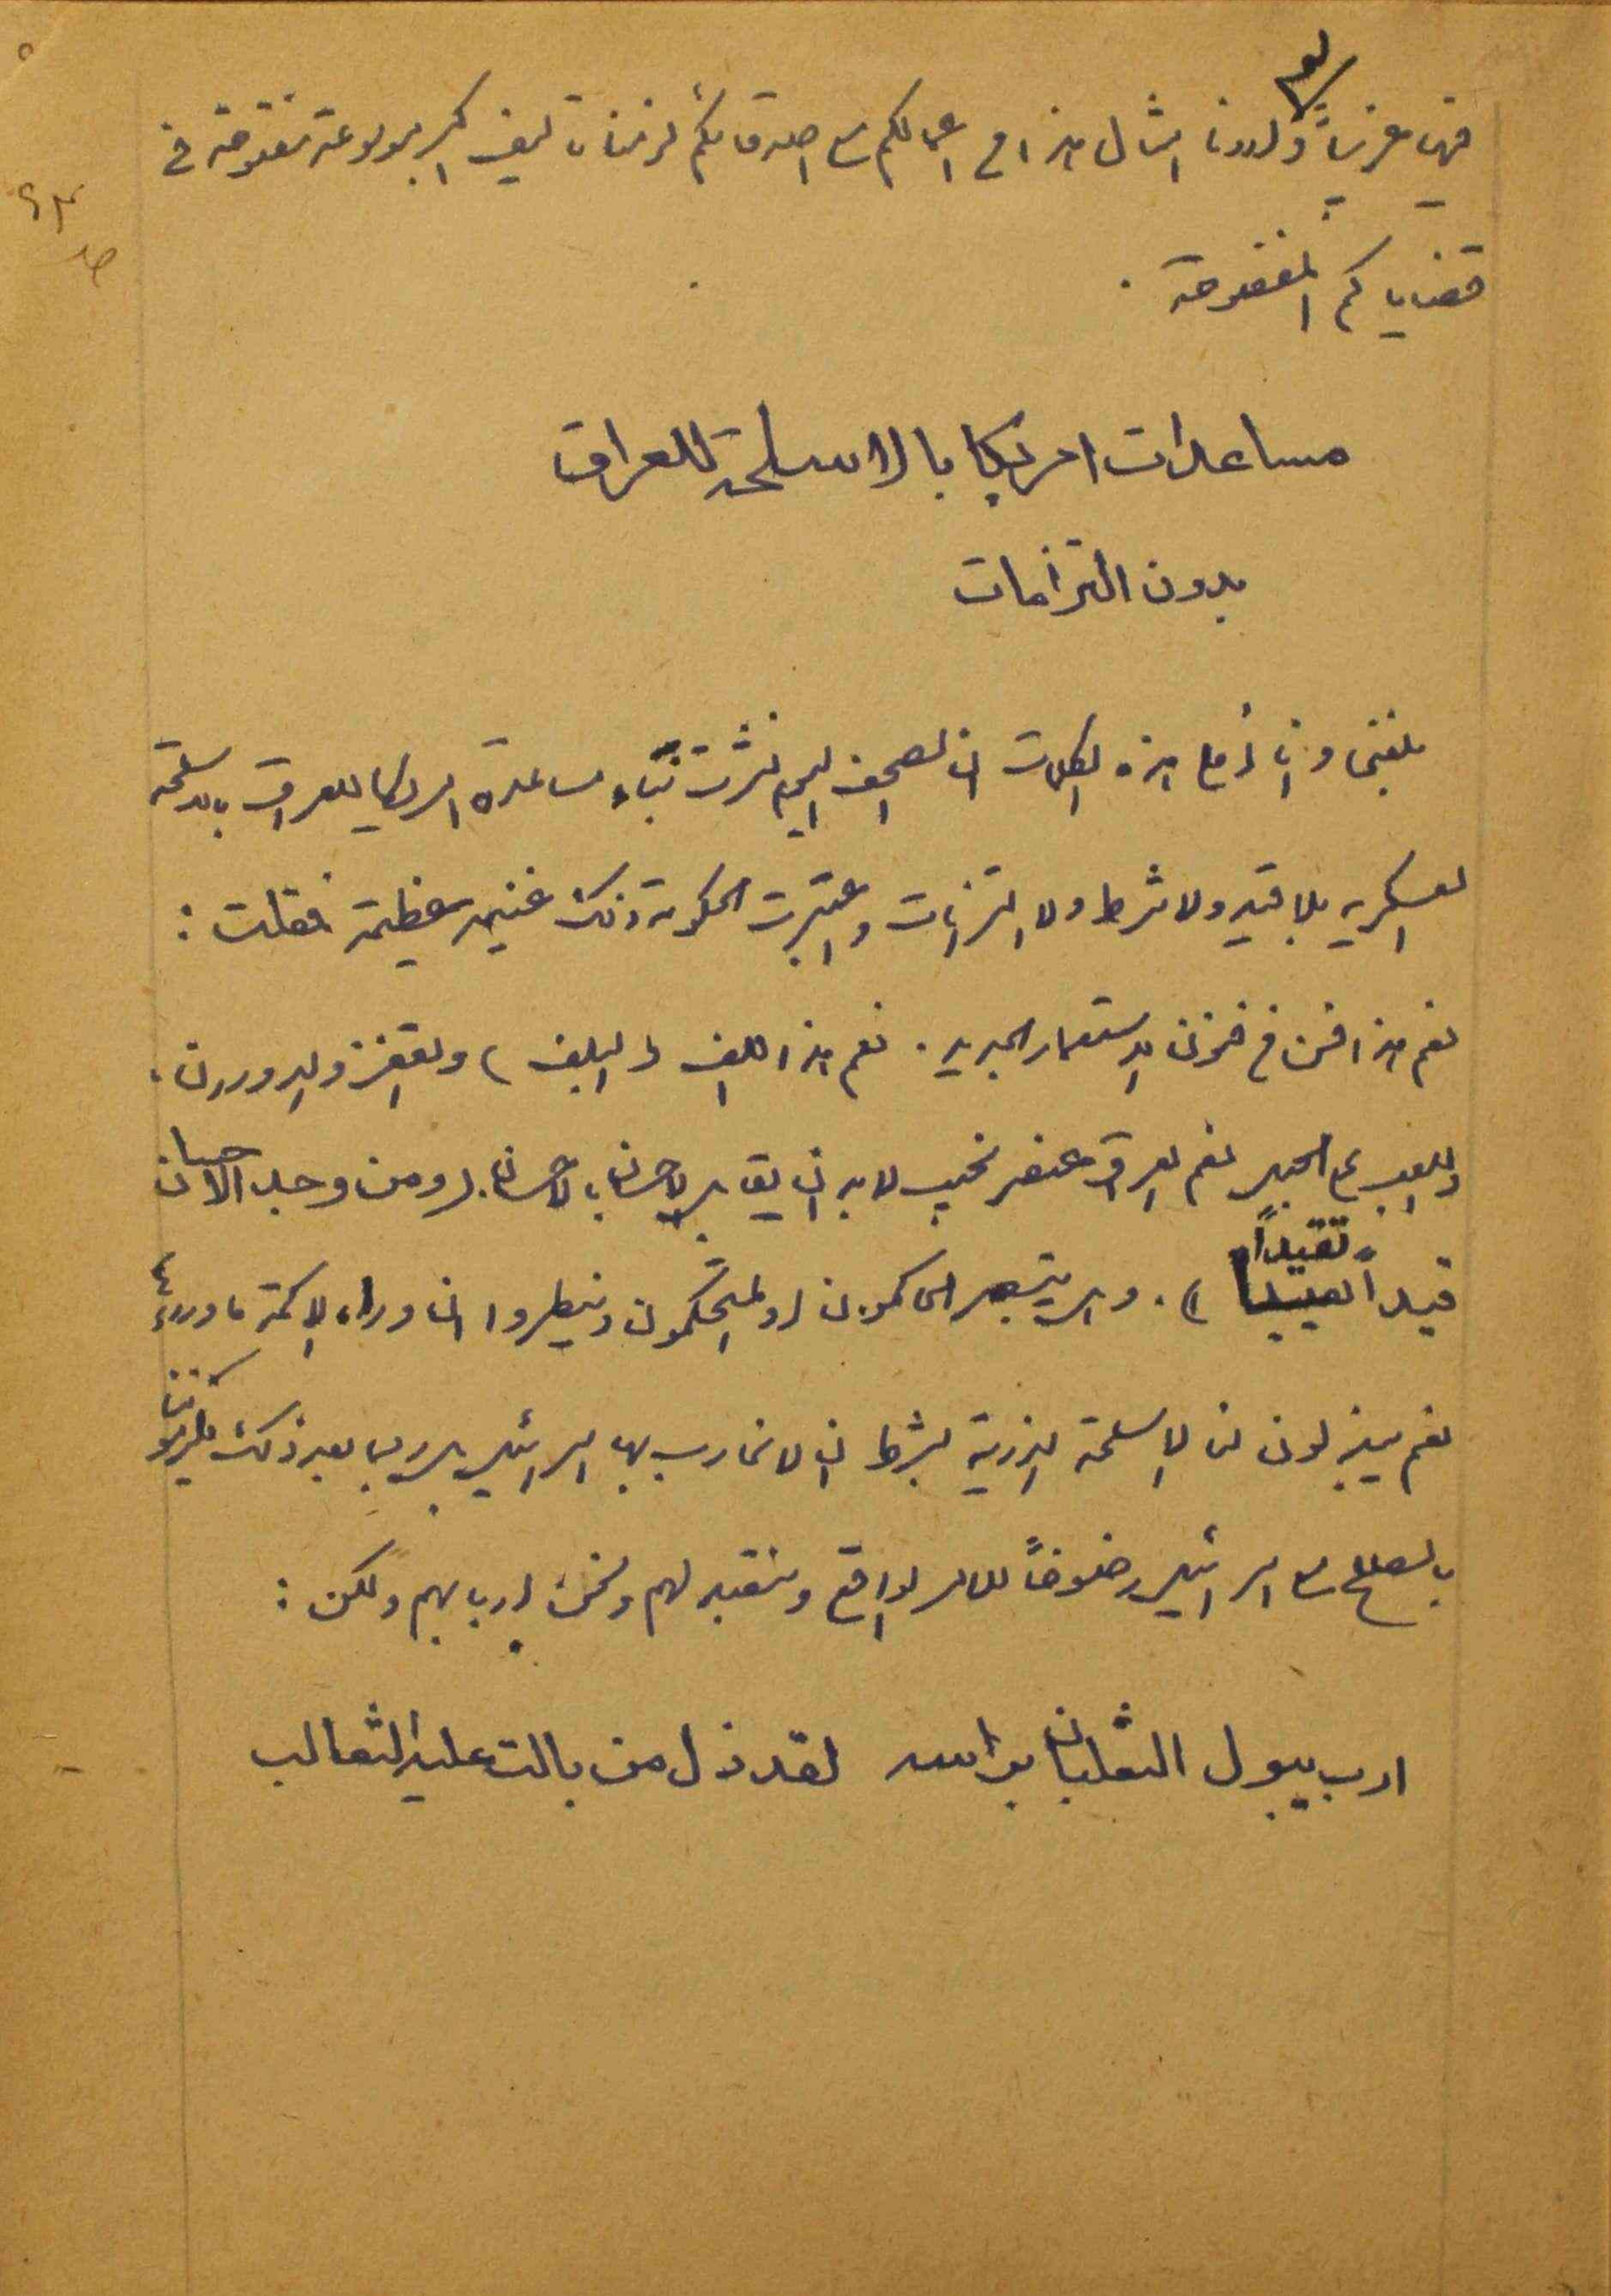 فهي مغزياً ولو اردنا امثال هذا في اعمالكم مع اصدقائكم لزمنا تأليف اكبر موسوعة مفتوحة في
قضاياكم المفضوحة .
مساعدات امريكا بالاسلحة للعراق
بدون التزامات
بلغني وانا أملي هذه الكلمات ان الصحف اليوم نشرت نباء مساعدة امريكا للعراق بالاسلحة
العسكريه بلا قيد ولا شرط ولا التزامات واعتبرت الحكومة ذلك غنيمة عظيمة فقلت :
نعم هذا فن من فنون الاستعمار الجديد . نعم هذا اللف ( البلف ) والقفز والدوران ،
واللعب على الحبل نعم العراق عنصر نجيب لا بد ان يقابل الاحسان بالاحسان ( ومن وجد الاحسان
قيداً تقيدا ) . وليتبصر الحاكمون او المتحكمون ولينظروا ان وراء الاكمة ما وراءها
نعم يبذلون لنا الاسلحة الذرية بشرط ان لا نحارب بها اسرائيل بل ربما بعد ذلك يلزموننا
بالصلح مع اسرائيل رضوخاً للامر الواقع ونتقيد لهم ونحن اربابهم ولكن :
ارب يبول الثعلبان براسه لقد ذل من بالت عليه الثعالب